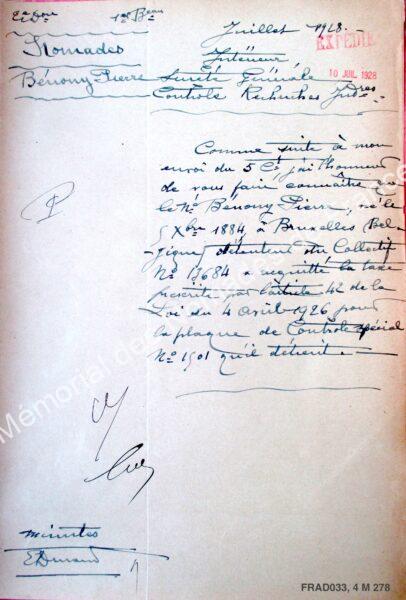 2e Don 1er Beau
Juillet 1928.
EXPÉDIÉ
10 JUIL 1928
Nomades
Intérieur
Bénony Pierre
Sureté Générale
Contrôle Recherches Jud.res
Comme suite à mon
envoi du 5 Ct j'ai l'honneur
de vous faire connaître que
le Né Bénony Pierre, né le
5 Xbre 1884, à Bruxelles (Bel-
gique) détenteur du Collectif
No 13684 a acquitté la taxe
prescrite par l'article 42 de la
Loi du 4 avril 1926 pour
la plaque de Contrôle spécial
No 1501 qu'il détient.
minutes
EDurand
Mémorial des
FRAD033, 4 M 278